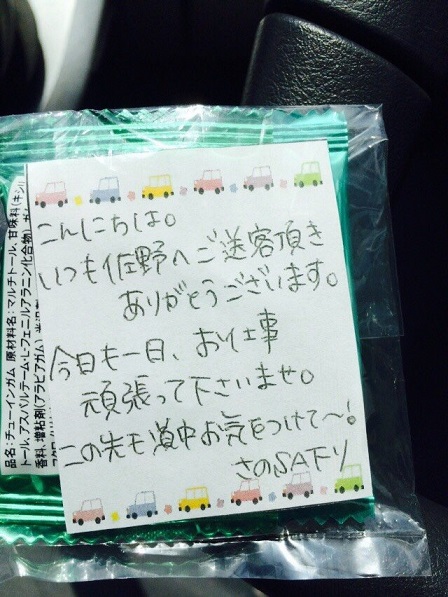 こんにちは。
いつも佐野へご送客頂き
ありがとうございます。
今日も一日、お仕事
頑張って下さいませ。
この先も道中お気をつけて〜!
さのSA下り
品名:チューインガム 原材料名:マルチトール、甘味料(キシリ
トール、アスパルテーム・L-フェニルアラニン化合物)、
香料、増粘剤(アラビアガム)、